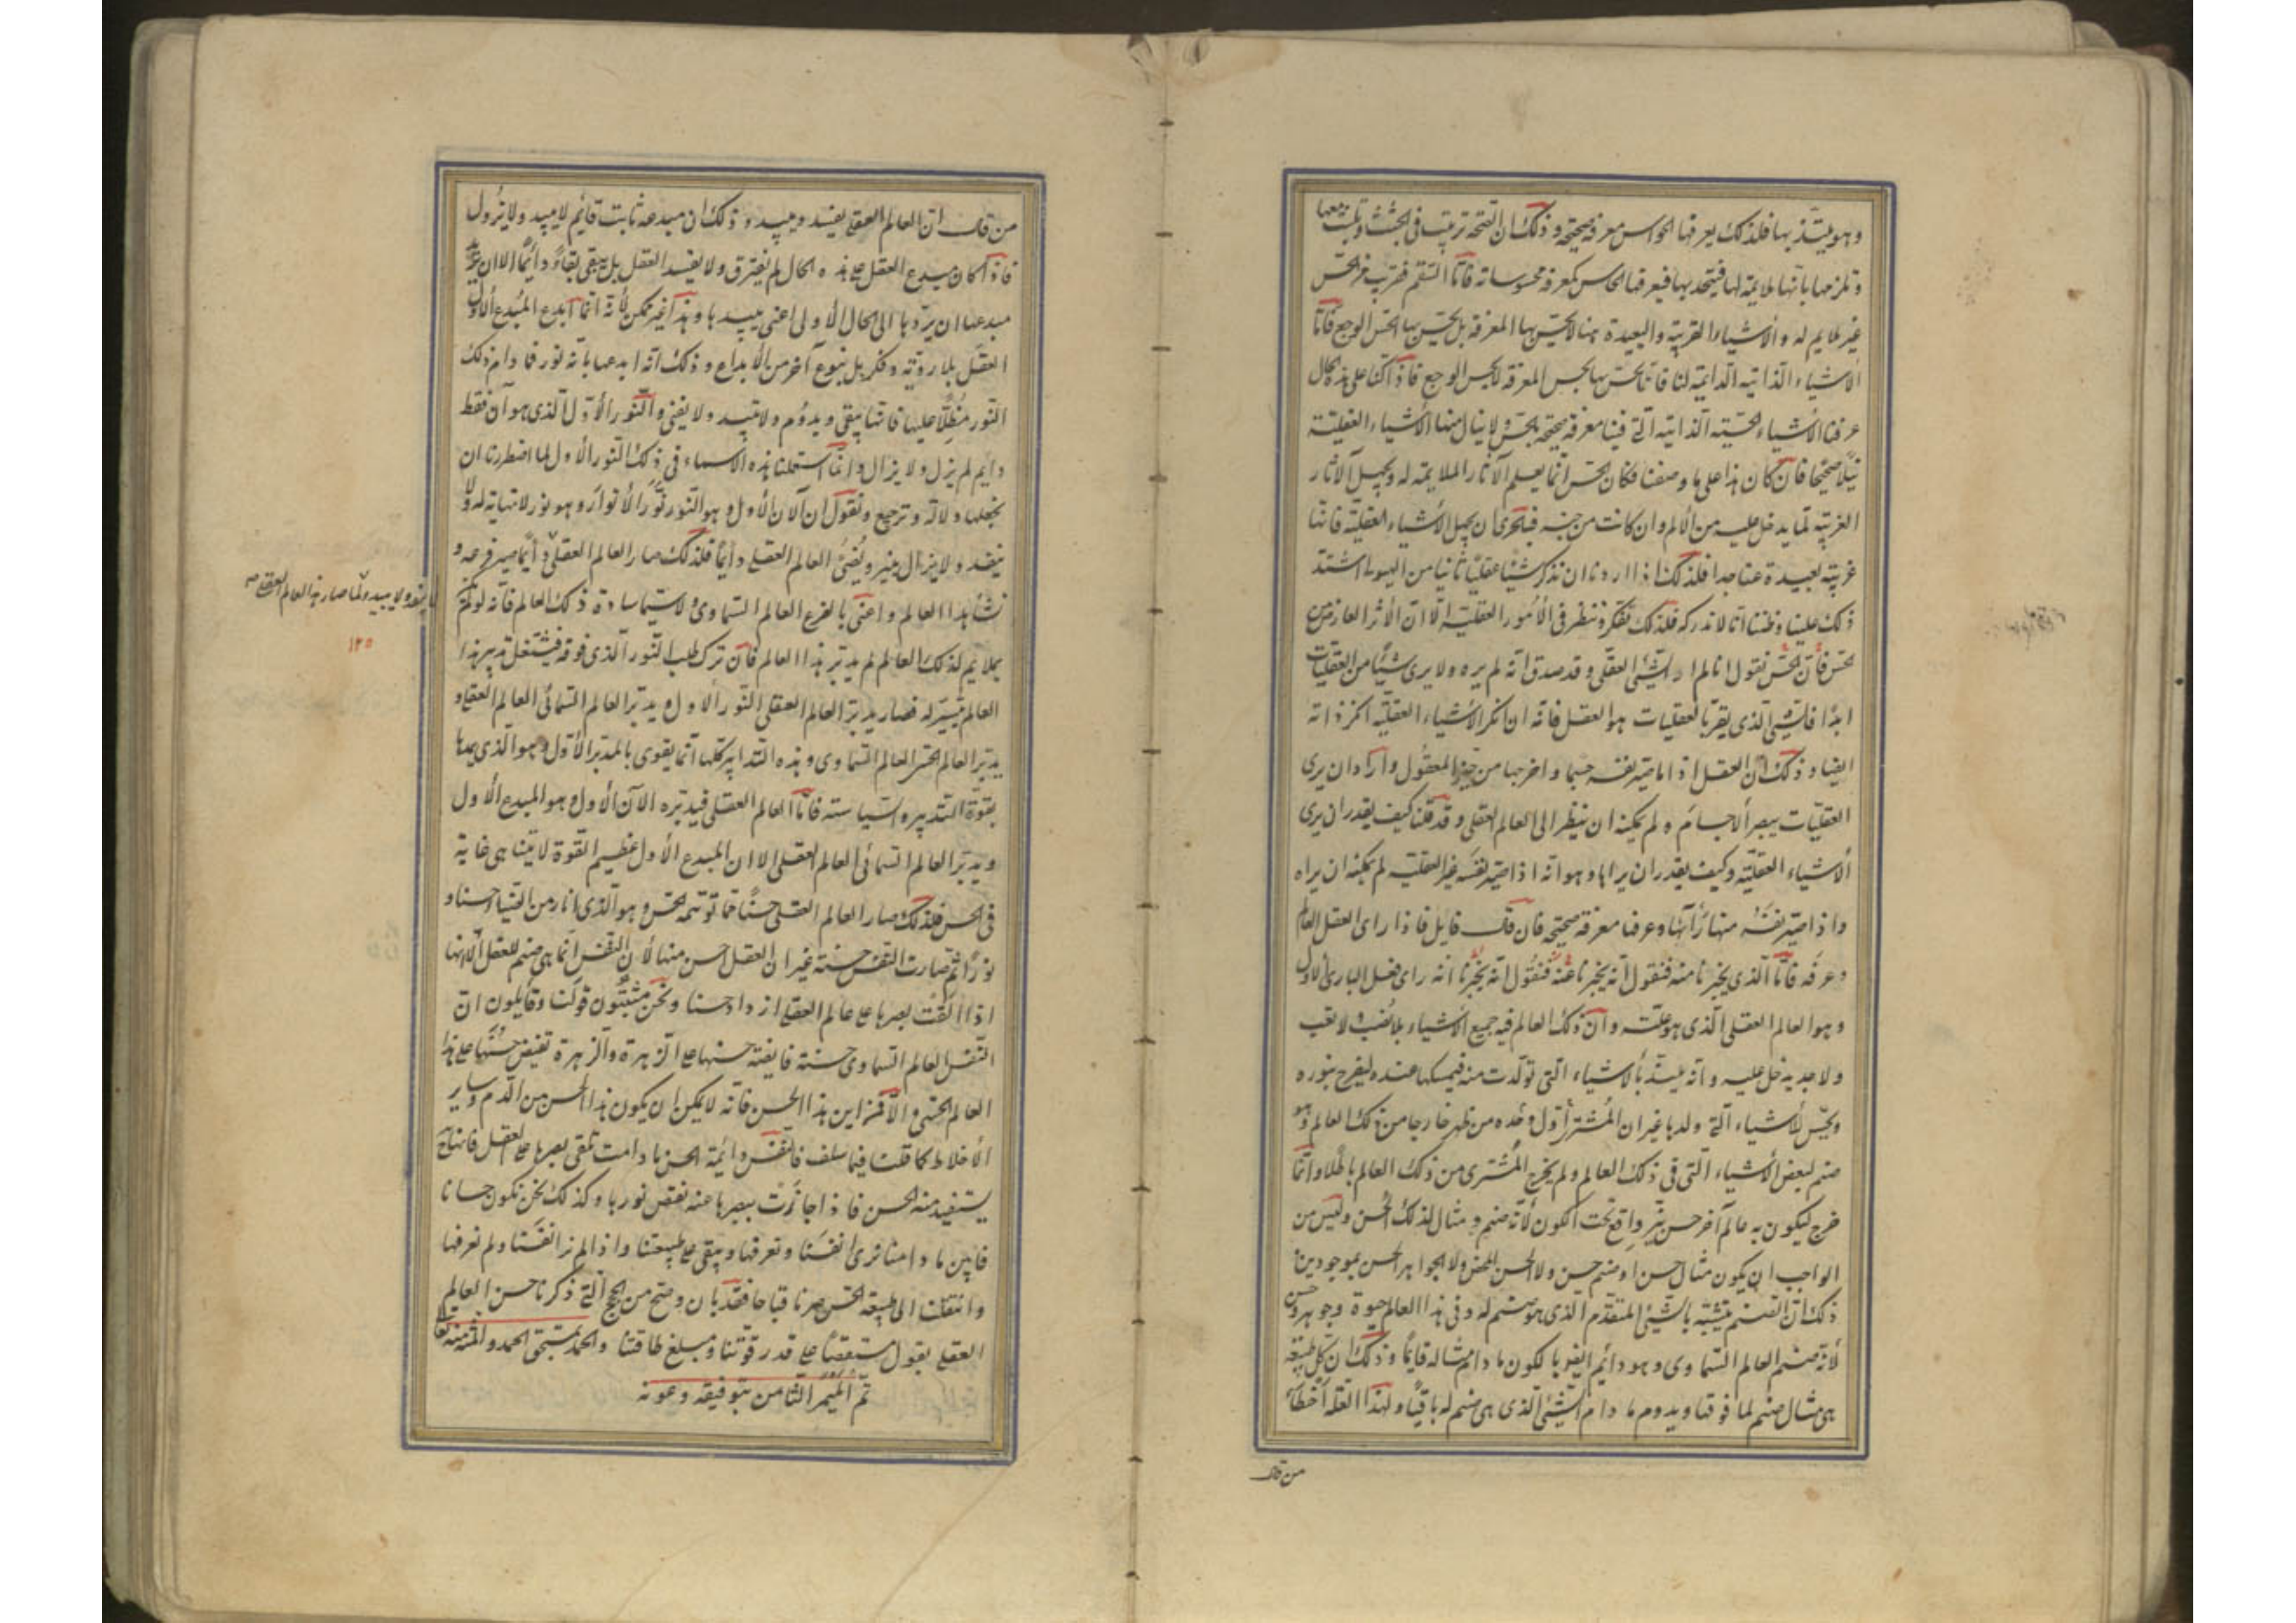 وهو يلتذ بها فلذلك يعرفها الحواس معرفة صحيحة وذلك ان الصحة ترتب فى الجثث وتثبت معها
وتلزمها بانها ملايمة لها فيتحد بها فيعرفها الحاس كمعرفة محسوساته فاما السقم فغريب من الحس
غير ملايم له والأشياء الغريبة والبعيدة منا لا نحس بها المعرفة بل نحس بها الحس الوجع فأما
الأشياء الذاتية الدايمة لنا فانا نحس بها بحس المعرفة لا بحس الوجع فاذا كنا على هذه الحال
عرفنا الأشياء الحسية الذاتية التى فينا معرفة صحيحة بحس ولا ينال منها الأشياء العقلية
نيلًا صحيحًا فان كان هذا على ما وصفنا فكان الحس انما يعلم الآثار الملايمة له ويجهل الآثار
الغريبة لما يدخل عليه من الألم وان كانت من جنسه فبالحرى ان يجهل الأشياء العقلية فانها
غريبة بعيدة عنا جدا فلذلك اذا اردنا ان نذكر شيئا عقليًا ثانيا من الهيولى اشتد
ذلك علينا وظننا انا لا ندركه فلذلك نتفكر وننظر فى الأمور العقلية الا ان الأثر العارض من
الحس فان الحس نقول انا لم ار الشئ العقلى وقد صدق انه لم يره ولا يرى شيئًا من العقليات
ابدًا فالشئ الذى يقر بالعقليات هو العقل فانه ان انكر الأشياء العقلية انكر ذاته
ايضا وذلك ان العقل اذا ما صير نفسه جسما واخرجها من حيز المعقول واراد ان يرى
العقليات ببصر الأجسام لم يمكنه ان ينظر الى العالم العقلى وقد قلنا كيف يقدر ان يرى
الأشياء العقلية وكيف يقدر ان يراها وهو انه اذا صير نفسه غير العقلية لم يمكنه ان يراه
واذا صير نفسه منها رآها وعرفها معرفة صحيحة فان قال قايل فاذا راى العقل العالم
وعرفه فاما الذى يخبرنا منه فنقول انه يخبرنا عنه فنقول انه يخبرنا انه راى فعل البارئ الأول
وهو العالم العقلى الذى هو علته وان ذلك العالم فيه جميع الأشياء بلا نصب ولا تعب
ولا جد يدخل عليه وانه يلتذ بالأشياء التى تولدت منه فيمسكها عنده ليفرح بنوره
وبحسن الأشياء التى ولدها غير ان المشترى أول وحده من ظهر خارجا من ذلك العالم وهو
صنم لبعض الأشياء التى فى ذلك العالم ولم يخرج المشترى من ذلك العالم باطلا وانما
خرج ليكون به عالم آخر حسن نير واقع تحت الكون لأنه صنم ومثال لذلك الحسن وليس من
الواجب ان يكون مثال حسن او صنم حسن ولا الحسن المحض ولا الجواهر الحسن بموجودين
ذلك ان الصنم يتشبه بالشئ المتقدم الذى هو صنم له وفى هذا العالم حيوة وجوهر وحسن
لأنه صنم العالم السماوى وهو دائم ايضا لكون ما دام مثاله قايمًا وذلك ان كل طبيعة
هى مثال صنم لما فوقها ويدوم ما دام الشئ الذى هى صنم له باقيًا ولهذا العلة أخطأ
من قال
من قال ان العالم العقلى يفسد ويبيد وذلك ان مبدعه ثابت قايم لا يبيد ولا يزول
فاذا كان مبدع العقل على هذه الحال لم يفترق ولا يفسد العقل بل يبقى بقاءً دائمًا الا ان يريد
مبدعها ان يردها الى الحال الأولى اعنى يبيدها وهذا غير ممكن لأنه انما أبدع المبدع الأول
العقل بلا روية وفكر بل بنوع آخر من الأبداع وذلك انه ابدعها بأنه نور فما دام ذلك
النور مُظِلًّا عليها فانها يبقى ويدوم ولا يبيد ولا يفنى والنور الأول الذى هو آن فقط
دايم لم يزل ولا يزال وانما استعملنا هذه الأسماء فى ذلك النور الأول لما اضطررنا ان
نجعلها دلالة وترجع ونقول ان الآن الأول وهو النور نور الأنوار وهو نور لا نهاية له ولا
ينفد ولا يزال ينير ويضئ العالم العقلى دائما فلذلك صار العالم العقلى دائما صير فرعه و
لا ينفد ولا يبيد ولما صار هذا العالم العقلى ص
١٢٥
نشأ هذا العالم واعنى بالفرع العالم السماوى ولا سيما سادة ذلك العالم فانه لو لم يكن
بملايم لذلك العالم لم يدبر هذا العالم فان ترك طلب النور الذى فوقه فيشتغل بتدبير هذا
العالم تيسر له فصار يدبر العالم العقلى النور الأول ويدبر العالم السمائى العالم العقلى و
يدبر العالم الحسى العالم السماوى وهذه التدابير كلها انما يقوى بالمدبر الأول وهو الذى يمدها
بقوة التدبير والسياسة فاما العالم العقلى فيدبره الآن الأول وهو المبدع الأول
ويدبر العالم السمائى العالم العقلى الا ان المبدع الأول عظيم القوة لا يتناهى غاية
فى الحسن فلذلك صار العالم العقلى حسنًا مما توسمه الحسن وهو الذى انار من الضيا حسنا و
نورًا ثم صارت النفس حسنة غير ان العقل احسن منها لأن النفس انما هى صنم للعقل الا انها
اذا القت بصرها على عالم العقلى ازدادت حسنا ونحن مثبتون قولنا وقايلون ان
النفس العالم السماوى حسنة فايضة حسنها على الزهرة والزهرة تفيض حسنها على هذا
العالم الحسى والا فمن اين هذا الحسن فانه لا يمكن ان يكون هذا الحسن من الدم وساير
الأخلاط كما قلنا فيما سلف فالنفس دائمة الحسن ما دامت تلقى بصرها على العقل فانها ح
يستفيد منه الحسن فاذا اجازت ببصرها عنه نقص نورها وكذلك نحن نكون حسانا
فايين ما دامنا نرى انفسنا ونعرفها ويبقى على طبيعتنا واذا لم نر انفسنا ولم نعرفها
وانتقلنا الى طبيعة الحس صرنا قباحا فقد بان وصح من الحجج التى ذكرنا حسن العالم
العقلى بقول مستقصًا على قدر قوتنا ومبلغ طاقتنا والحمد لمستحق الحمد والمنة منه تعا
تم الميمر الثامن بتوفيقه وعونه